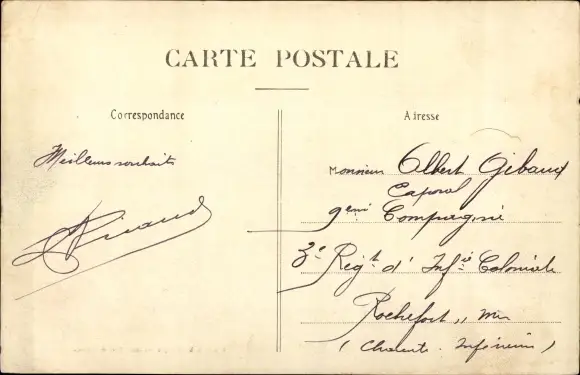 CARTE POSTALE
Correspondance
Adresse
Meilleurs souhaits
Monsieur Albert Gibaud
Caporal
9eme Compagnie
3e Régt d' Infie Coloniale
Rochefort s/ Mer
( Charente - Inférieure )